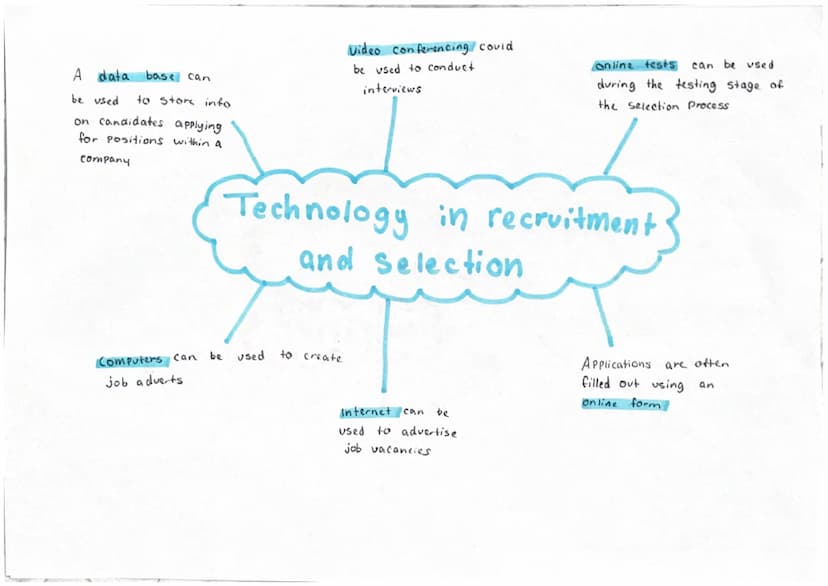 A data base can
be used to store info
on candidates applying
for positions within a
company
Video conferencing could
be used to conduct
interviews
online tests can be used
during the testing stage of
the selection process
Technology in recruitment
and selection
Computers can be used to create
job adverts
Internet can be
used to advertise
job vacancies
Applications are often
filled out using an
online form